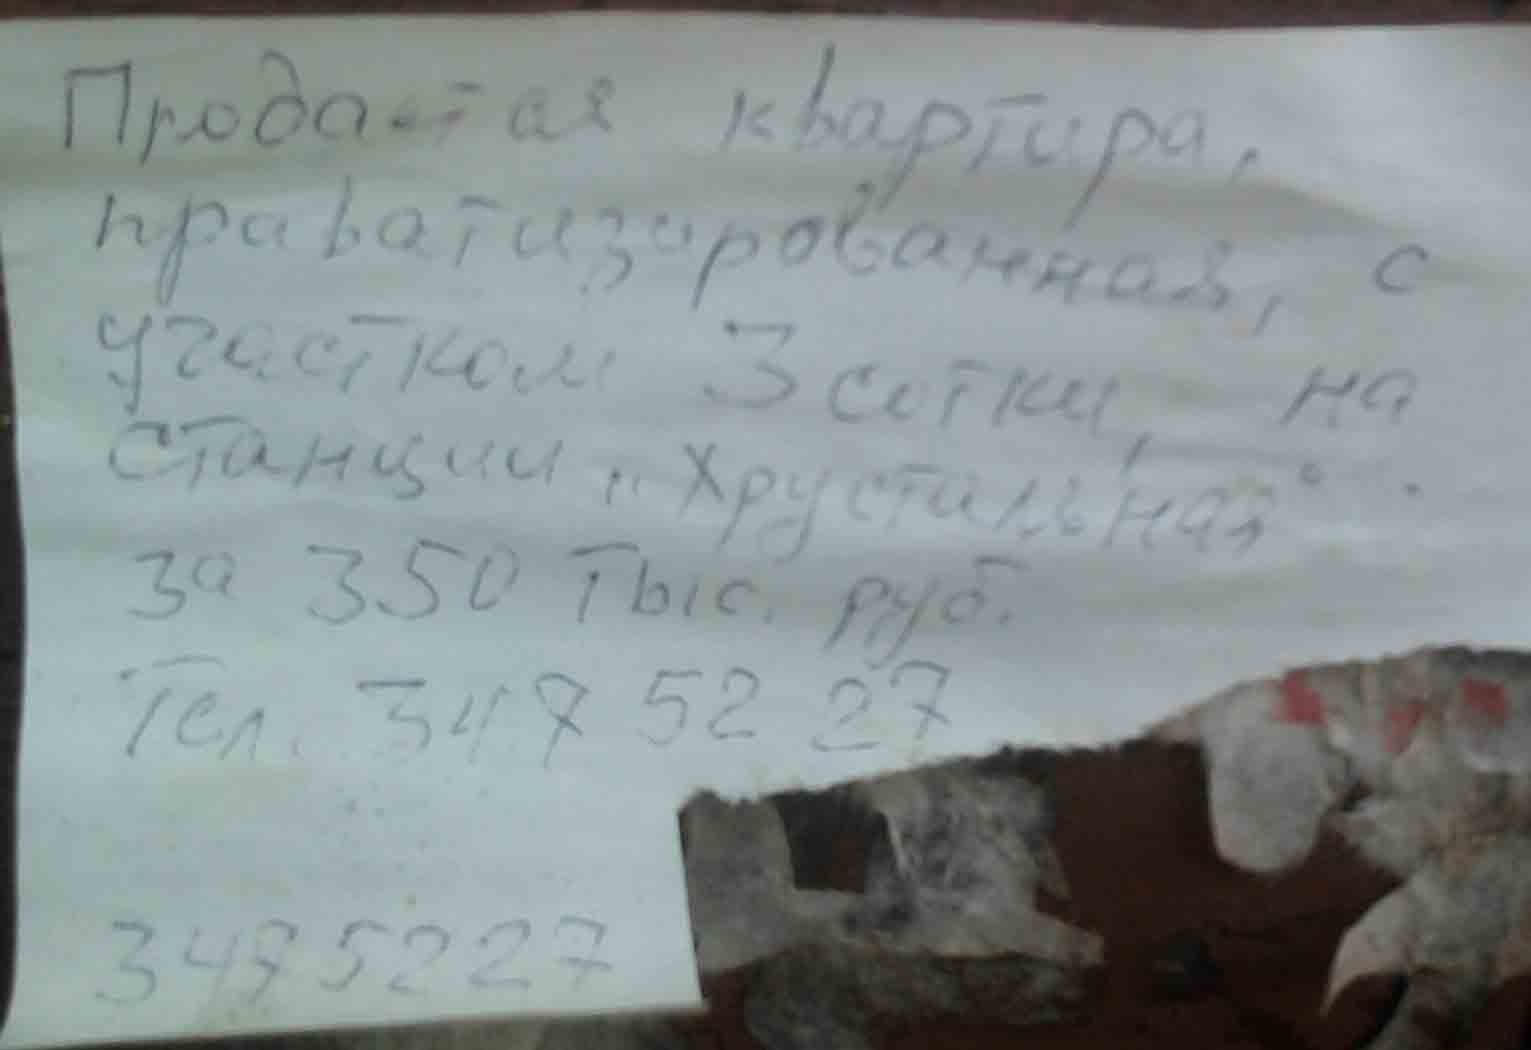 Продается квартира,
праватизированная, с
участком 3 сотки, на
станции „Хрустальная".
за 350 тыс. руб.
Тел. 347 52 27
3475227